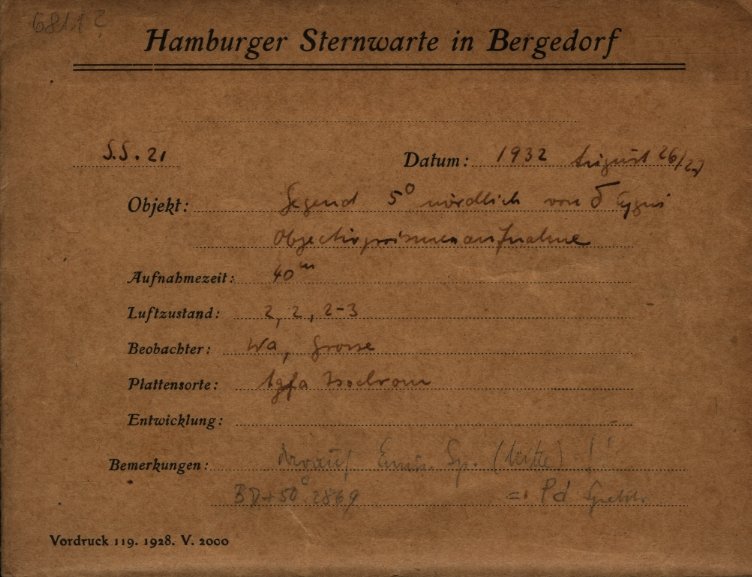 6811?
Hamburger Sternwarte in Bergedorf
S.S. 21
Datum: 1932 August 26/27
Objekt: Gegend 5° nördlich von δ Cygni
Objectivprismenaufnahme
Aufnahmezeit: 40m
Luftzustand: 2, 2, 2-3
Beobachter: Wa, Grosse
Plattensorte: Agfa Isochrom
Entwicklung:
Bemerkungen: darauf Em. Sp. !!
BD+50° 2869 = Pd
Vordruck 119. 1928. V. 2000